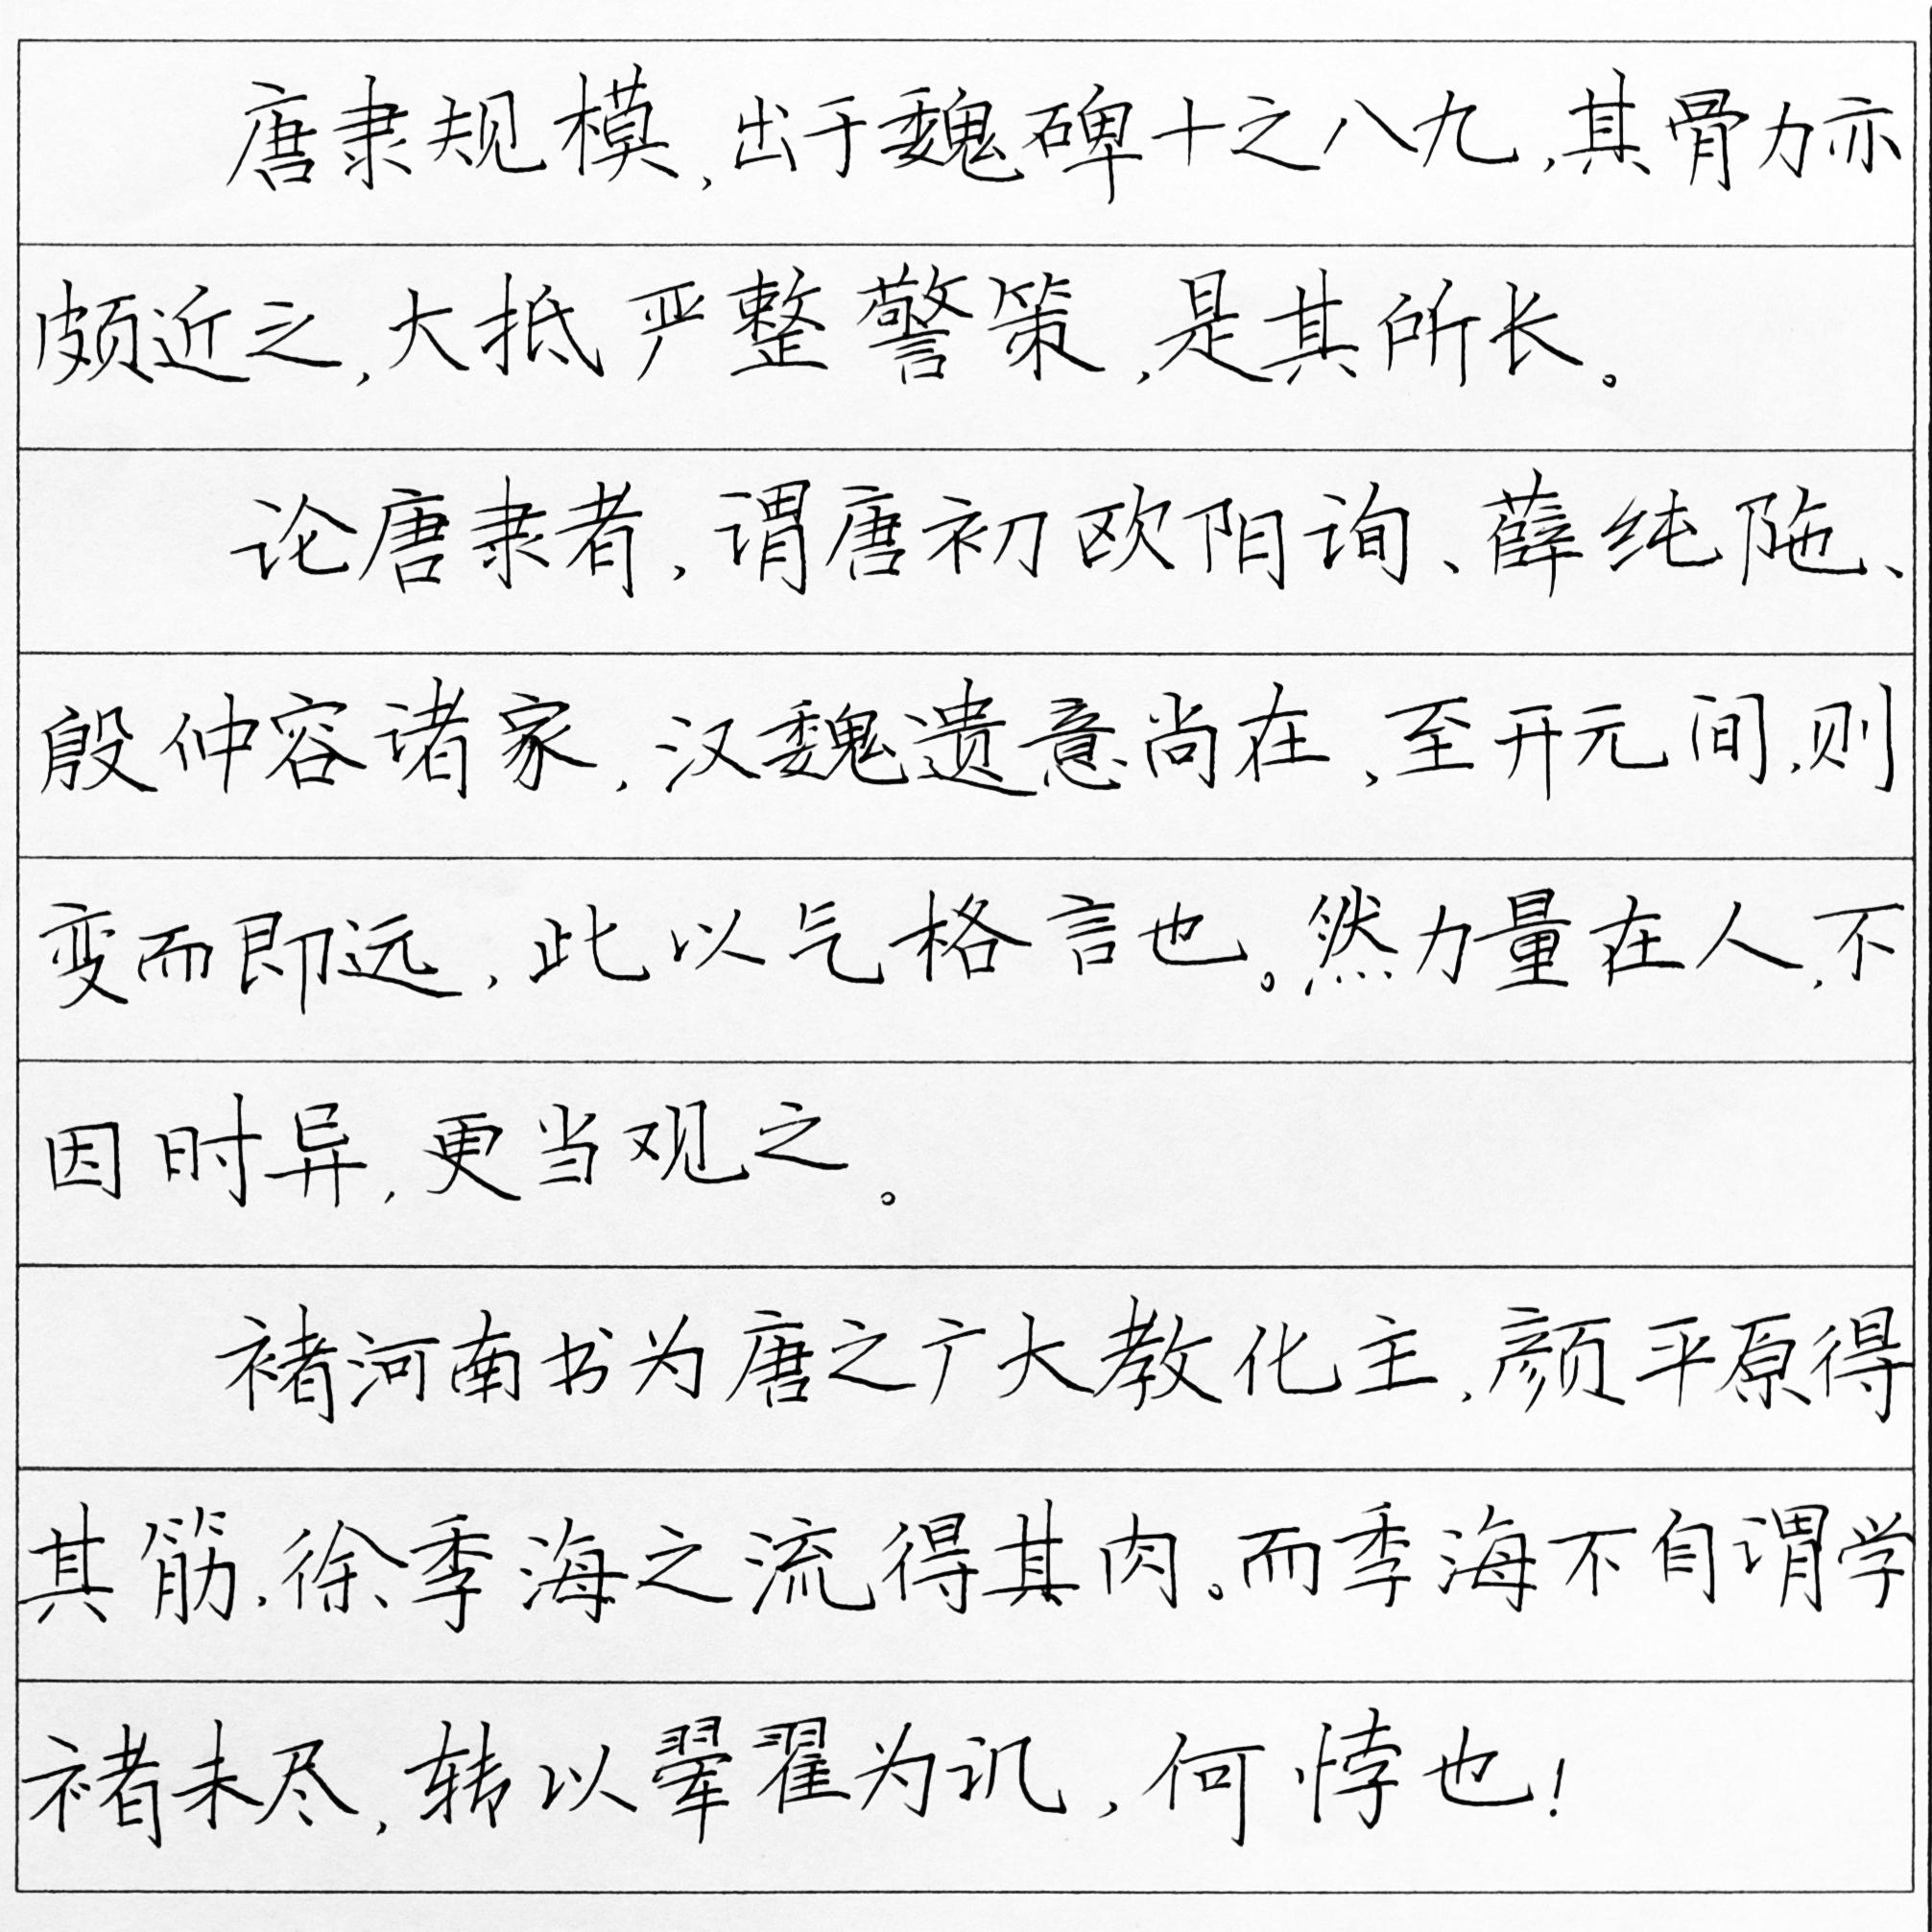 唐隶规模,出于魏碑十之八九,其骨力亦
颇近之,大抵严整警策,是其所长。
论唐隶者,谓唐初欧阳询、薛纯陁、
殷仲容诸家,汉魏遗意尚在,至开元间,则
变而即远,此以气格言也。然力量在人,不
因时异,更当观之。
褚河南书为唐之广大教化主,颜平原得
其筋,徐季海之流得其肉。而季海不自谓学
褚未尽,转以翚翟为讥,何悖也!